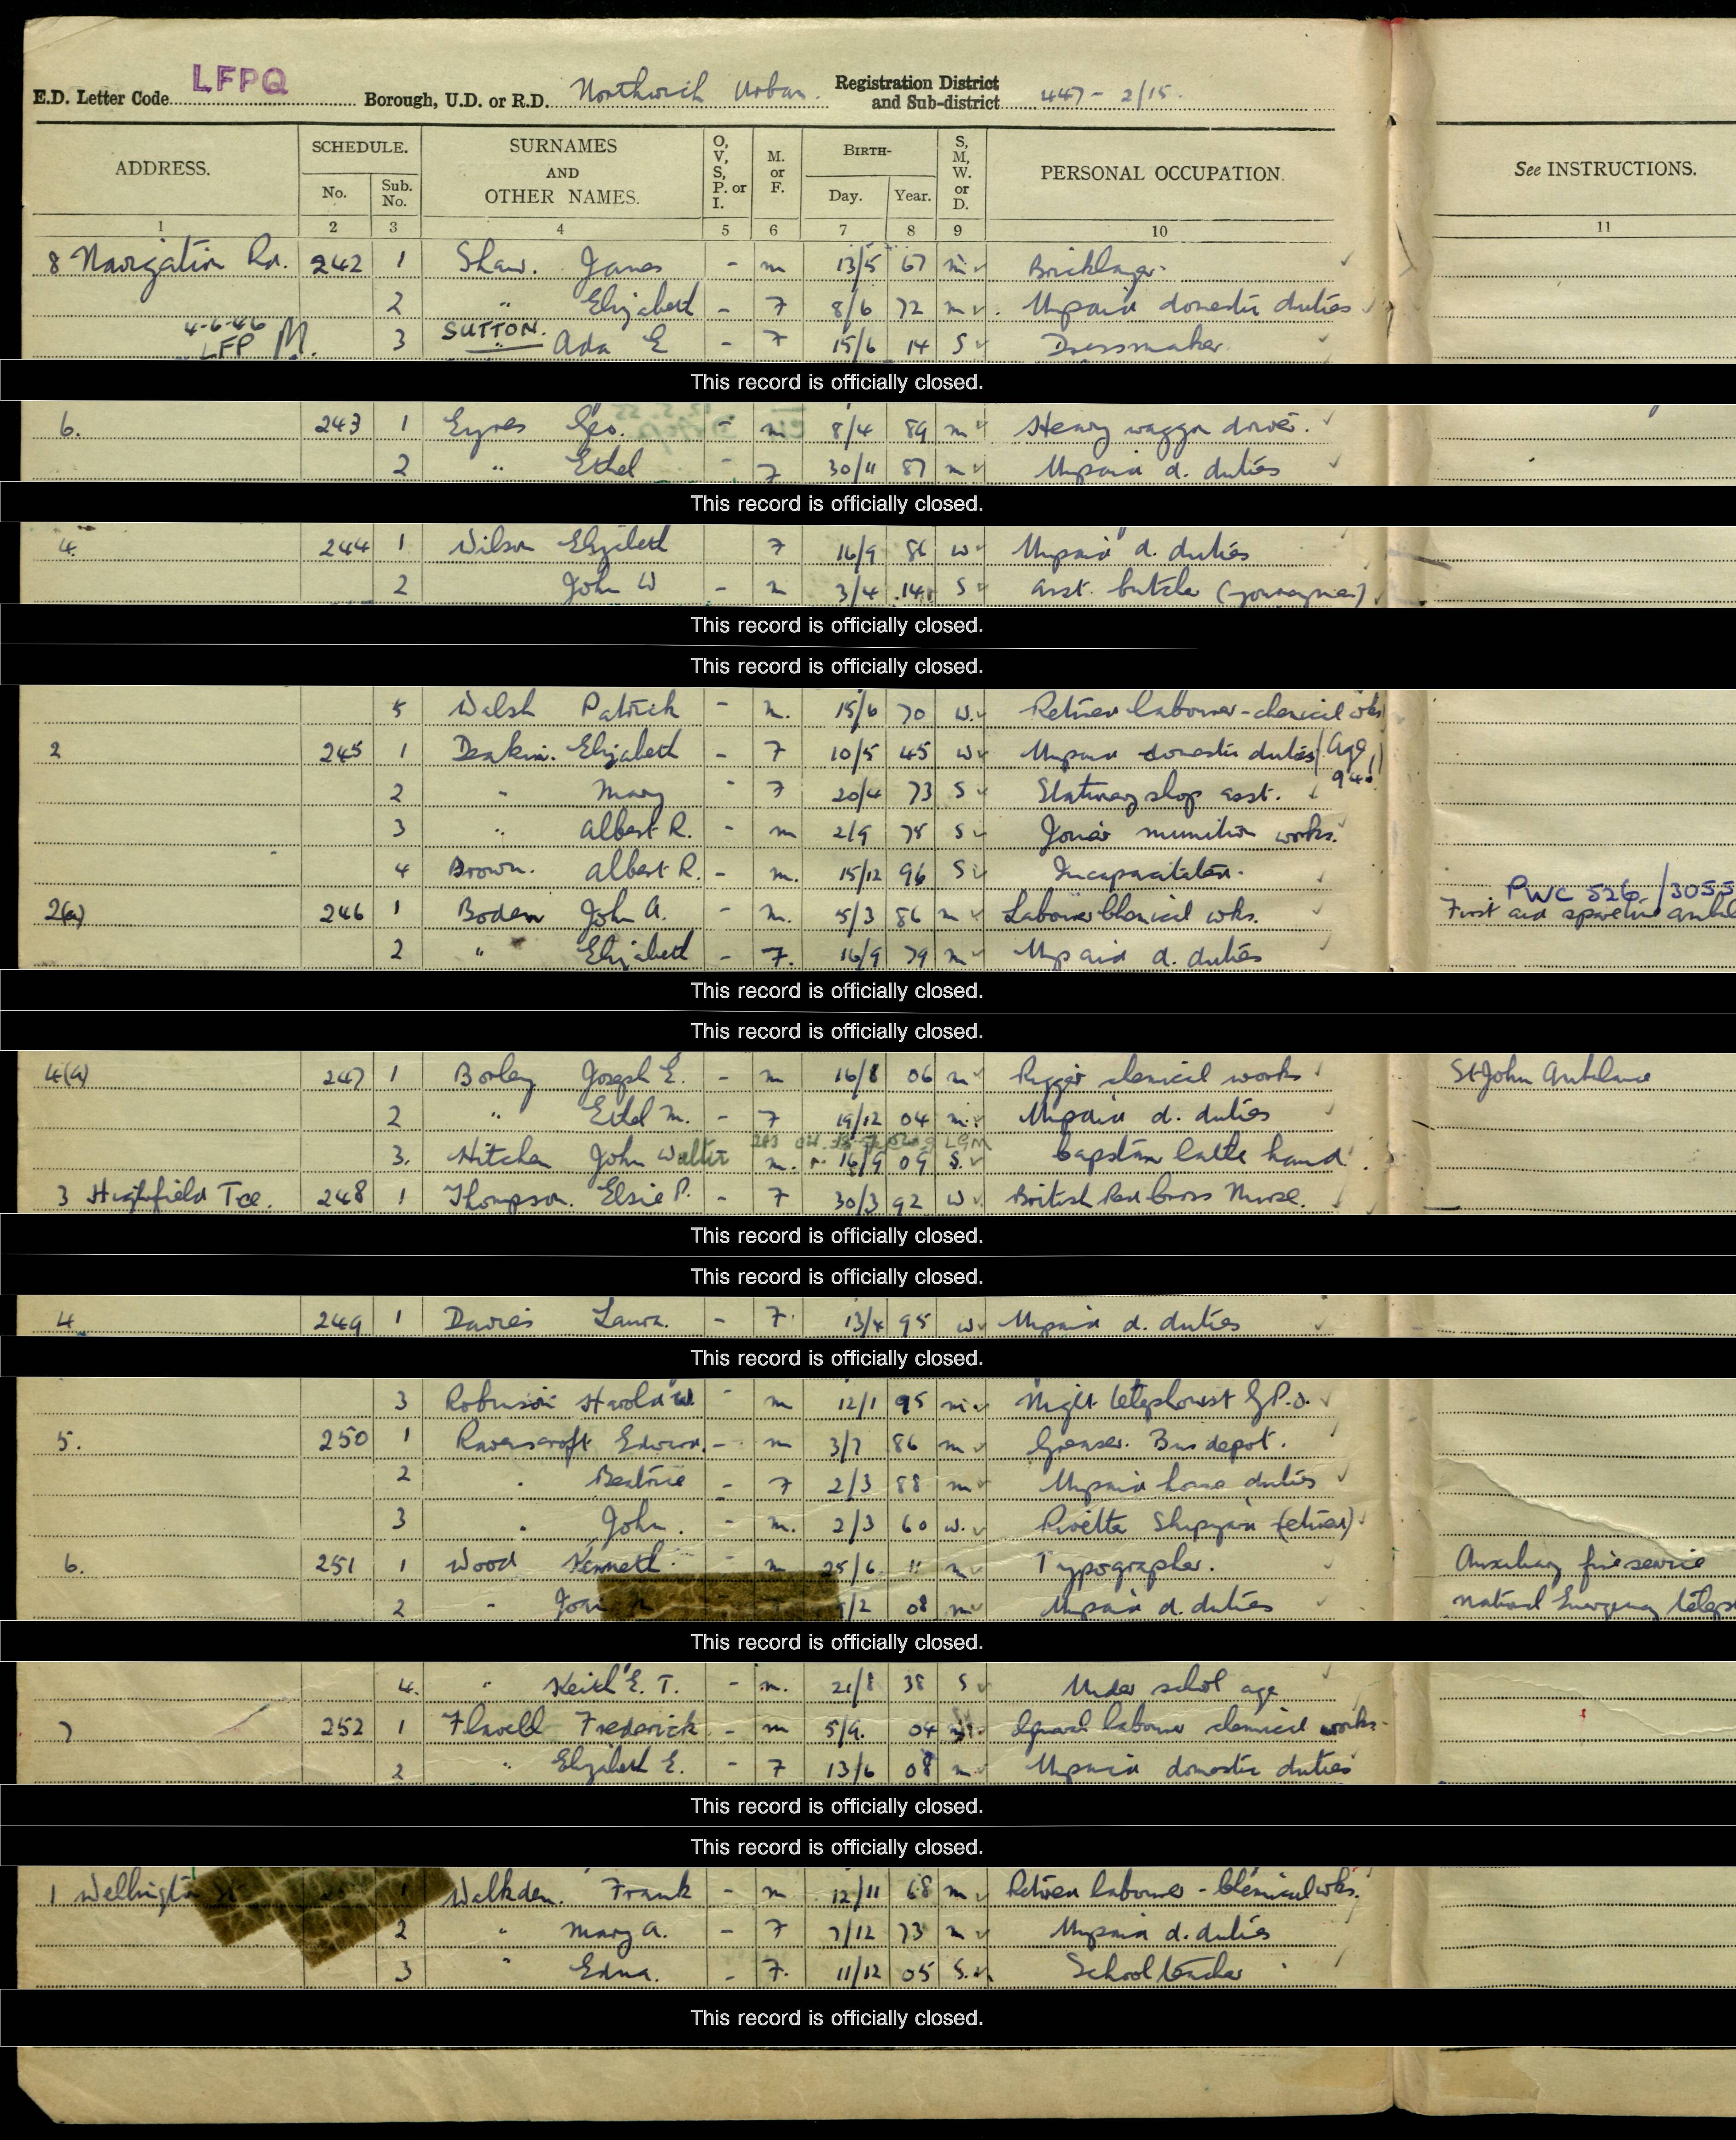 E.D. Letter Code LFPQ Borough, U.D. or R.D. Northwich Urban. Registration District and Sub-district 447- 2/15.
ADDRESS. SCHEDULE. No. Sub. No. SURNAMES AND OTHER NAMES. O, V, S, P. or I. M. or F. BIRTH- Day. Year. S, M, W. or D. PERSONAL OCCUPATION. See INSTRUCTIONS.
1 2 3 4 5 6 7 8 9 10 11
8 Navigation Rd. 242 1 Shaw. James - m 13/5 67 m Bricklayer.
2 " Elizabeth - F 8/6 72 m Unpaid domestic duties
4-6-46 LFP M. 3 SUTTON. " Ada E - F 15/6 14 S Dressmaker
This record is officially closed.
6. 243 1 Eyres Geo. - m 8/4 89 m Heavy waggon driver.
2 " Ethel - F 30/11 87 m Unpaid d. duties
This record is officially closed.
4. 244 1 Wilson Elizabeth F 16/9 86 w Unpaid d. duties
2 John W - m 3/4 14 S Asst. butcher (journeyman)
This record is officially closed.
This record is officially closed.
5 Walsh Patrick - m. 15/6 70 w. Retired labourer - chemical wks
2 245 1 Deakin. Elizabeth - F 10/5 45 w Unpaid domestic duties (Age 94!)
2 " Mary - F 20/4 73 S Stationery shop asst.
3 " Albert R. - m 2/9 75 S Joiner munition works.
4 Brown. Albert R. - m. 15/12 96 S Incapacitated. PWC 526/3055
2(a) 246 1 Boden John A. - m. 5/3 86 m Labourer Chemical wks. First aid
2 " Elizabeth - F. 16/9 79 m Unpaid d. duties
This record is officially closed.
This record is officially closed.
4(a) 247 1 Borley Joseph E. - m 16/8 06 m Rigger chemical works St John Ambulance
2 " Ethel M. - F 19/12 04 m Unpaid d. duties
3. Hitchen John Walter m. 16/9 09 S. Capstan lathe hand.
3 Highfield Tce. 248 1 Thompson. Elsie P. - F 30/3 92 w British Red Cross Nurse.
This record is officially closed.
This record is officially closed.
4 249 1 Davies Laura. - F. 13/4 95 w Unpaid d. duties
This record is officially closed.
3 Robinson Harold W - m 12/1 95 m Night telephonist G.P.O.
5. 250 1 Ravenscroft Edward. - m 3/7 86 m Greaser. Bus depot.
2 " Beatrice - F 2/3 88 m Unpaid house duties
3 " John. - m. 2/3 60 w. Rivetter Shipyard (retired)
6. 251 1 Wood Kenneth. - m 25/6 11 m Typographer. Auxiliary fire service
2 " /2 08 m Unpaid d. duties National Emergency
This record is officially closed.
4. " Keith E. T. - m. 21/8 38 S Under school age
7 252 1 Flavell Frederick - m 5/9. 04 labourer chemical works.
2 " Elizabeth E. - F 13/6 08 m Unpaid domestic duties
This record is officially closed.
This record is officially closed.
1 Wellington St 1 Walkden. Frank - m 12/11 68 m Retired labourer - Chemical wks.
2 " Mary A. - F 7/12 73 m Unpaid d. duties
3 " Edna. - F. 11/12 05 S. School teacher
This record is officially closed.